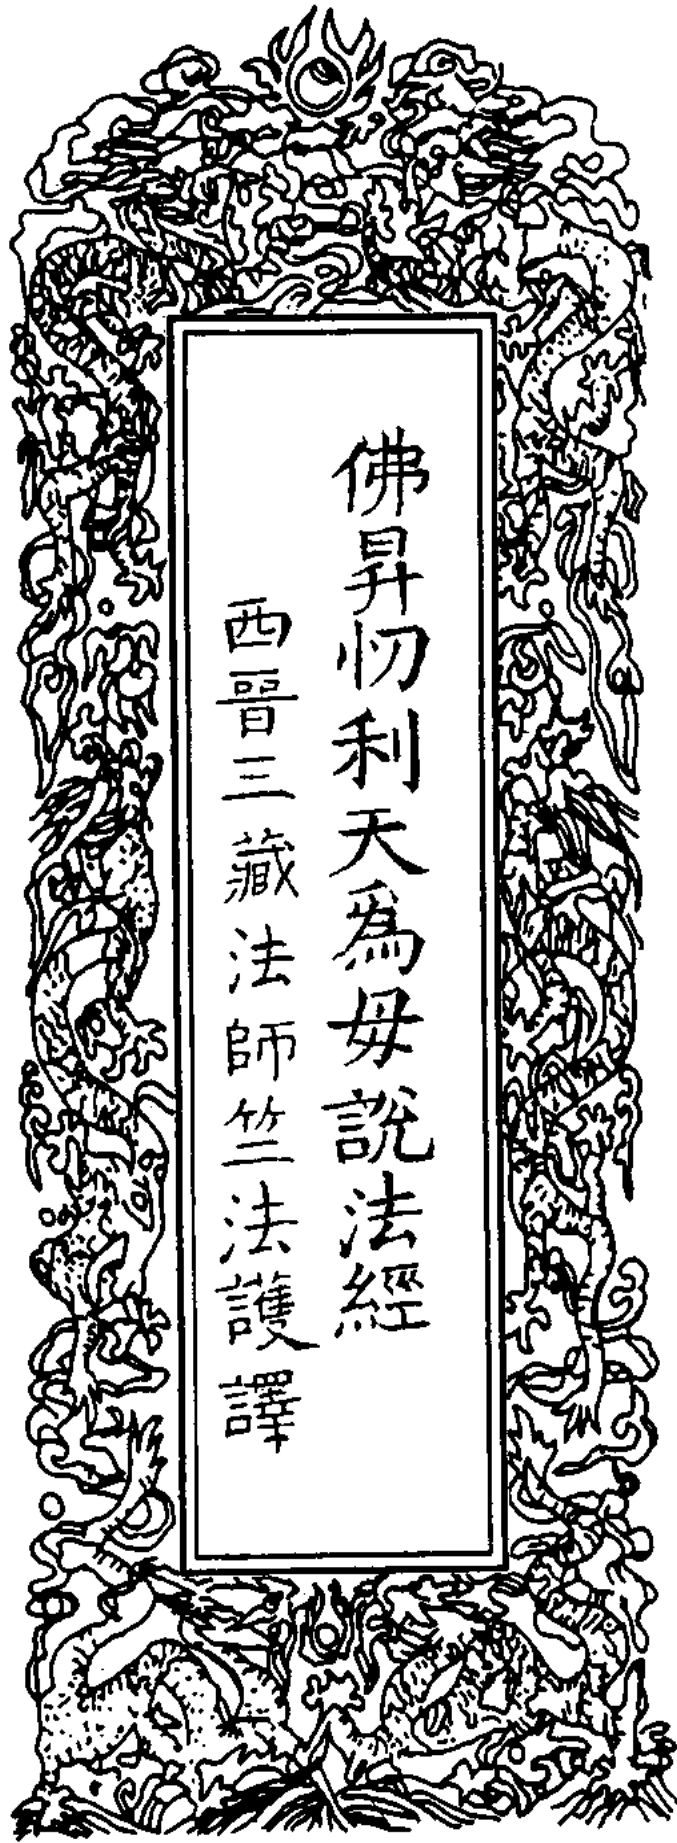 佛昇忉利天爲母說法經
西晉三藏法師竺法護譯